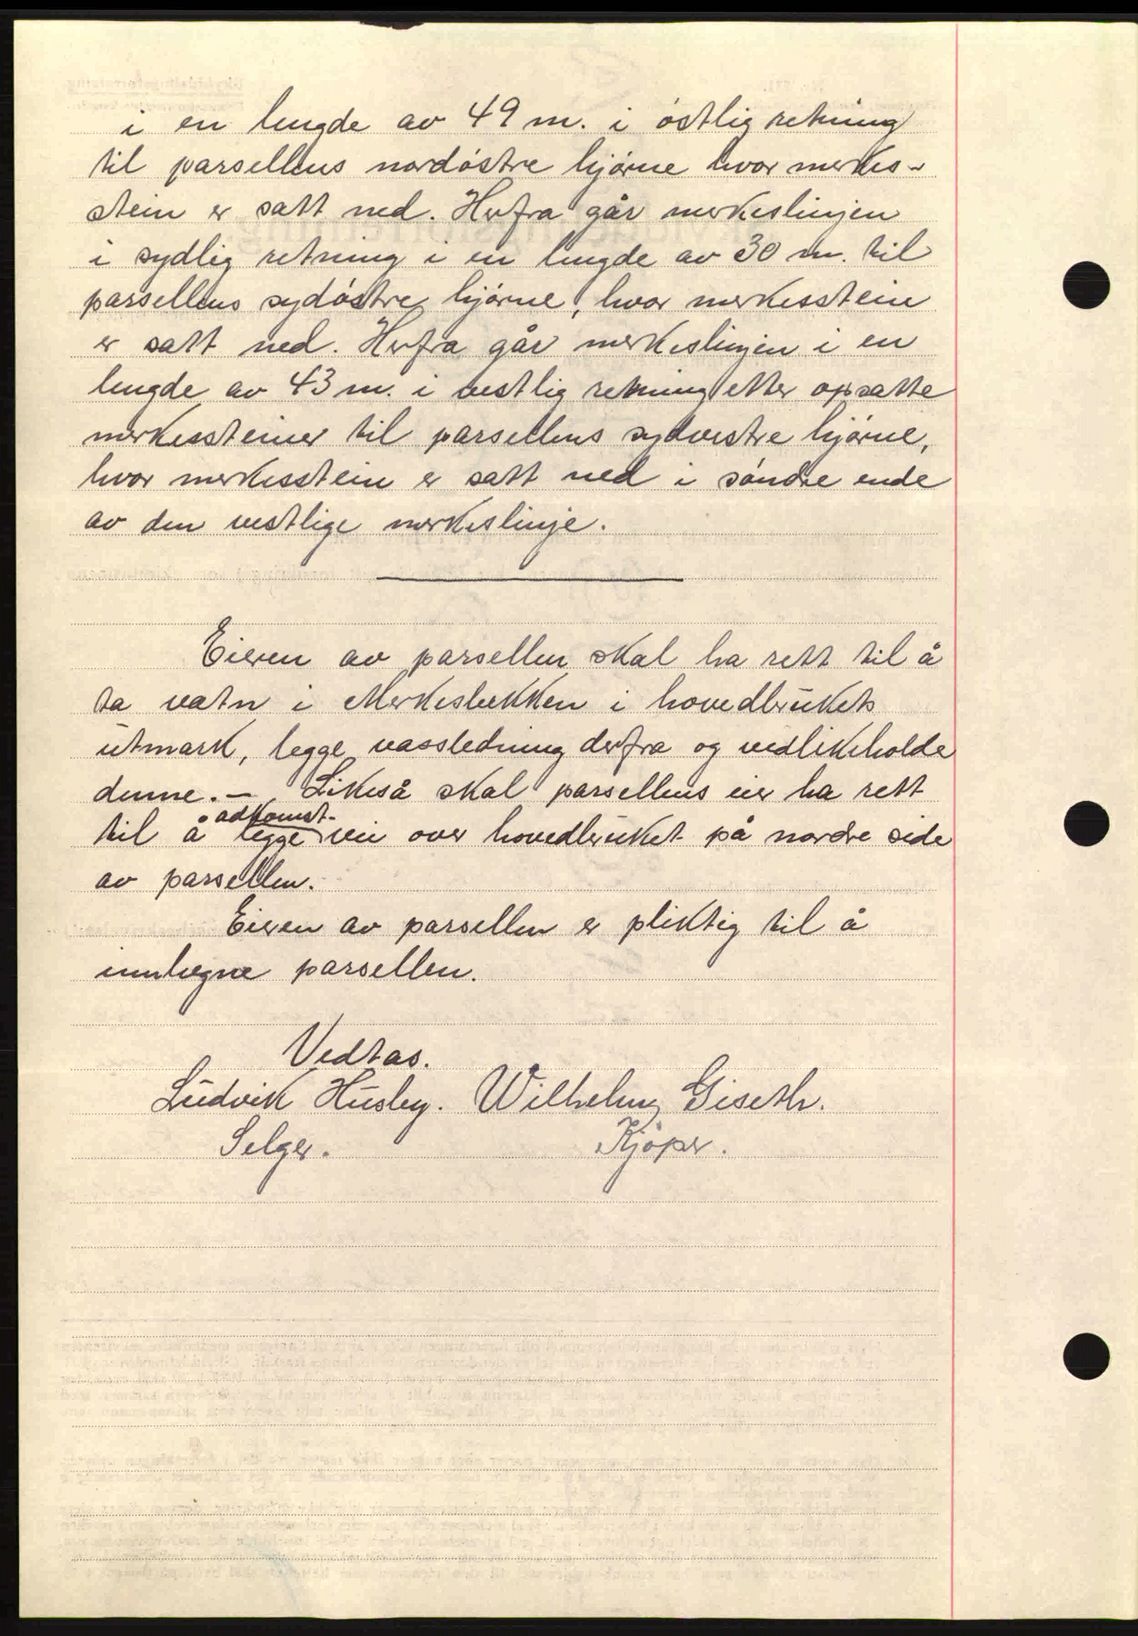 i en lengde av 49 m. i østlig retning
til parsellens nordøstre hjørne hvor merkes-
stein er satt ned. Herfra går merkeslinjen
i sydlig retning i en lengde av 30 m. til
parsellens sydøstre hjørne, hvor merkesstein
er satt ned. Herfra går merkeslinjen i en
lengde av 43 m. i vestlig retning etter opsatte
merkessteiner til parsellens sydvestre hjørne,
hvor merkesstein er satt ned i søndre ende
av den vestlige merkeslinje.
Eieren av parsellen skal ha rett til å
ta vatn i Merkesbekken i hovedbrukets
utmark, legge vassledning derfra og vedlikeholde
denne. – Likeså skal parsellens eier ha rett
adkomst-
til å legge vei over hovedbruket på nordre side
av parsellen.
Eieren av parsellen er pliktig til å
innhegne parsellen.
Vedtas.
Ludvik Husby. Wilhelm Giseth.
Selger. Kjøper.